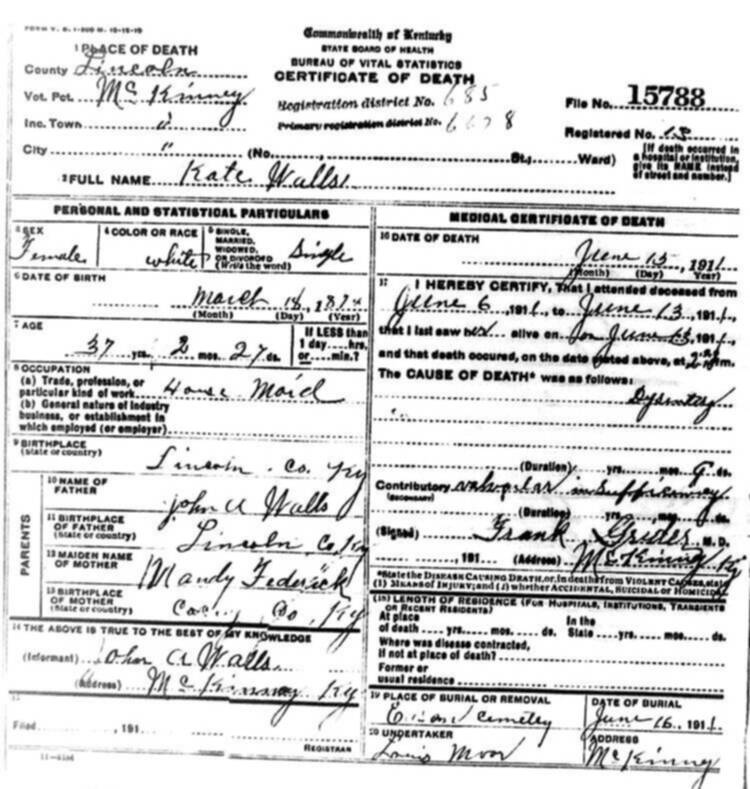 FORM V. S. 1-500 M. 10-18-10
Commonwealth of Kentucky
STATE BOARD OF HEALTH
BUREAU OF VITAL STATISTICS
CERTIFICATE OF DEATH
1 PLACE OF DEATH
County Lincoln
Vot. Pct. McKinney
Inc. Town "
City "
(No. St., Ward)
Registration district No. 685
Primary registration district No.
File No. 15788
Registered No. 13
[If death occurred in a hospital or institution, give its NAME instead of street and number.]
2 FULL NAME Kate Walls
PERSONAL AND STATISTICAL PARTICULARS
3 SEX Female
4 COLOR OR RACE white
5 SINGLE, MARRIED, WIDOWED, OR DIVORCED (Write the word) Single
6 DATE OF BIRTH
March 18, 1874
(Month) (Day) (Year)
7 AGE
37 yrs. 2 mos. 27 ds.
If LESS than 1 day....hrs. or....min.?
8 OCCUPATION
(a) Trade, profession, or particular kind of work House Maid
(b) General nature of industry business, or establishment in which employed (or employer)
9 BIRTHPLACE
(State or country) Lincoln Co. Ky
PARENTS
10 NAME OF FATHER John A Walls
11 BIRTHPLACE OF FATHER (State or country) Lincoln Co, Ky
12 MAIDEN NAME OF MOTHER Mandy Federick
13 BIRTHPLACE OF MOTHER (State or country) Casey Co, Ky
14 THE ABOVE IS TRUE TO THE BEST OF MY KNOWLEDGE
(Informant) John A Walls
(Address) McKinney Ky
15
Filed , 191
REGISTRAR
MEDICAL CERTIFICATE OF DEATH
16 DATE OF DEATH
June 15, 1911
(Month) (Day) (Year)
17 I HEREBY CERTIFY, That I attended deceased from
June 6, 1911, to June 13, 1911,
that I last saw her alive on June 13, 1911,
and that death occured, on the date stated above, at 2 m.
The CAUSE OF DEATH* was as follows:
Dysentery
(Duration) yrs. mos. 9 ds.
Contributory valvular insufficiency
(SECONDARY)
(Duration) yrs. mos. ds.
(Signed) Frank Grider M.D.
, 191 (Address) McKinney Ky
*State the DISEASE CAUSING DEATH, or, in deaths from VIOLENT CAUSES, state (1) MEANS OF INJURY; and (2) whether ACCIDENTAL, SUICIDAL or HOMICIDAL
(18) LENGTH OF RESIDENCE (FOR HOSPITALS, INSTITUTIONS, TRANSIENTS OR RECENT RESIDENTS)
At place of death yrs. mos. ds. In the State yrs. mos. ds.
Where was disease contracted, If not at place of death?
Former or usual residence
19 PLACE OF BURIAL OR REMOVAL
Cemetery
DATE OF BURIAL
June 16, 1911
20 UNDERTAKER
Louis Moor
ADDRESS
McKinney